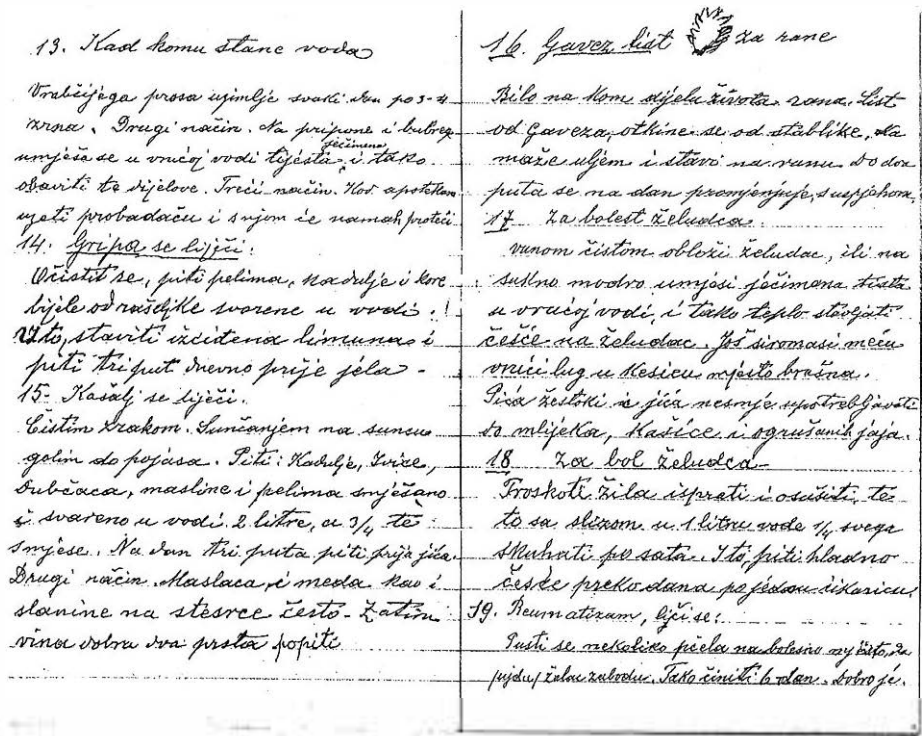 13. Kad komu stane voda
Vrabčijega prosa ujimlje svaki dan po 3-4
zrna. Drugi način. Na pripone i bubreg
ječimena
umješa se u vrućoj vodi tijesta i tako
obaviti te dijelove. Treći način. Kod apotekara
uzeti probadaču i s njom će namah proteći
14. Gripa se liječi:
Očistit se, piti pelima, kadulje i kore
bijele od raščljke svorene u vodi.
I to, staviti iscidena limuna i
piti triput dnevno prije jela -
15- Kašalj se liječi.
Čistim zrakom. Sunčanjem na suncu
golim do pojasa. Piti: Kadulje, Ivice,
Dubčaca, masline i pelima smješano
i svareno u vodi 2 litre, a 3/4 te
smjese. Na dan tri puta piti prija jića.
Drugi način. Maslaca i meda kao i
slanine na stesrce često - Zatim
vina dobra dva prsta popiti
16. Gavez list za rane
Bilo na kom dijelu života rana. List
od Gaveza, otkine se od stablike, Na
maže uljem i stavi na ranu. Do dva
puta se na dan promjenjuje, s uspjehom,
17 Za bolest želudca.
vunom čistom obloži želudac, ili na
sukno modro umjesi ječimana tista
u vrućoj vodi, i tako teplo stavljati
češće na želudac. Još siromasi meću
vrući lug u kesicu mjesto brašna.
Pića žestoki i jića nesmje upotrebljavati
do mlijeka, Kašice i ogrušanih jaja.
18 Za bol želudca -
Troskoti žila isprati i osušiti, te
to sa slizom u 1 litru vode 1/4 svega
skuhati po sata. I to, piti hladno
češće preko dana po jednu čikaricu.
19. Reumatizam, liječi se:
Pusti se nekoliko pčela na bolesno mjesto, da
pujdu, želac zabodu. Tako činiti 6 dan. Dobro je.